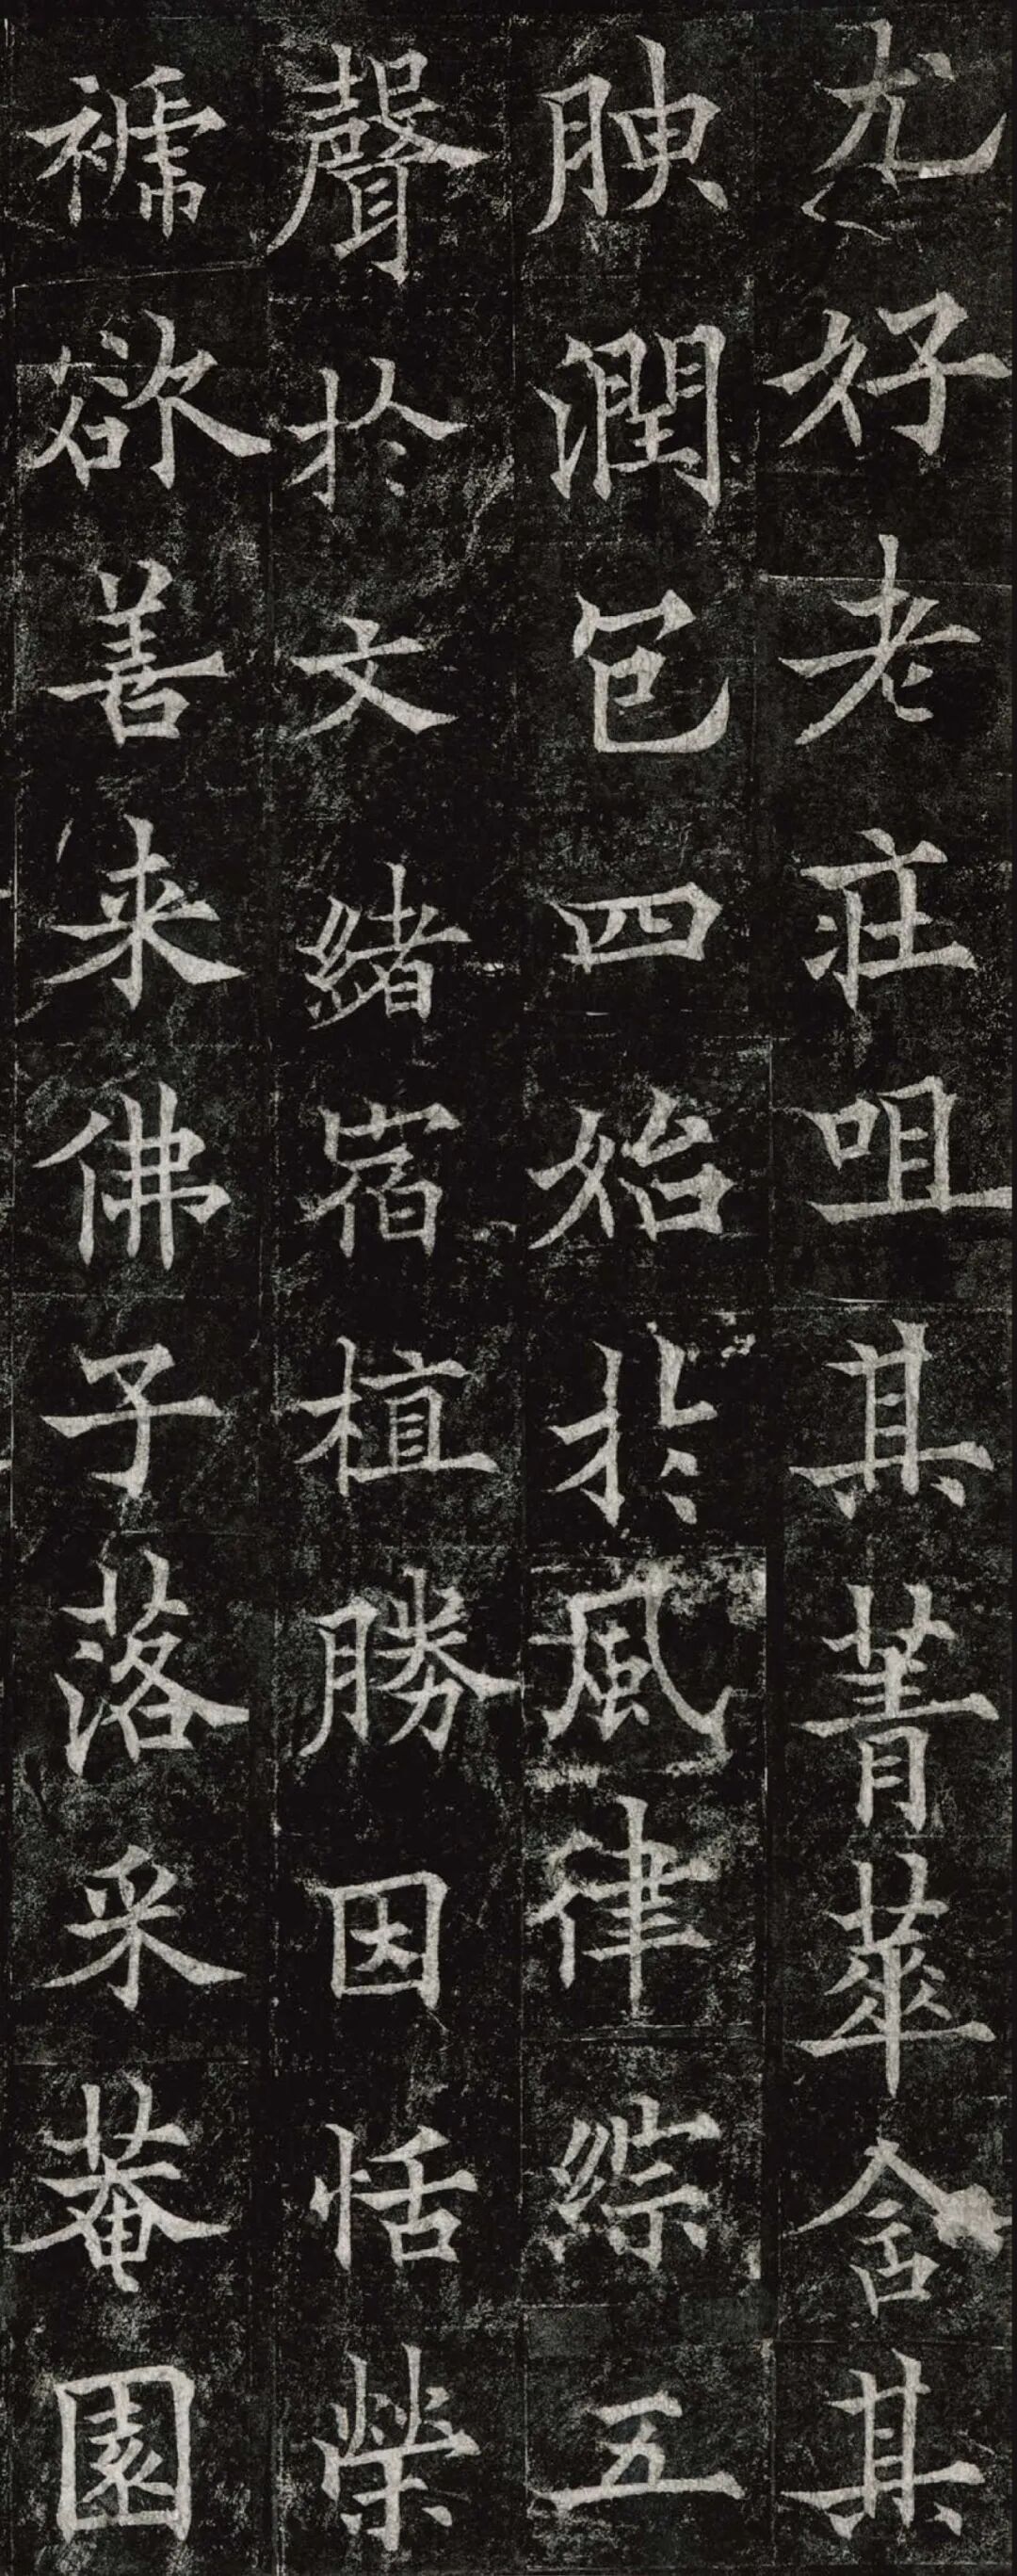 尤好老莊咀其菁華含其
腴潤包四始於風律綜五
聲於文緒宿植勝因恬榮
褫欲善来佛子落采菴園